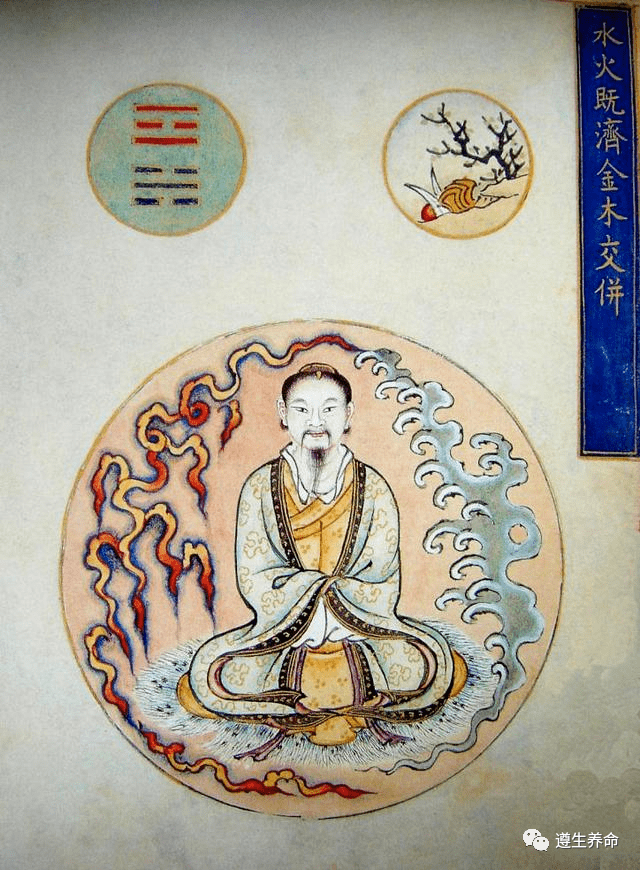 水火既濟金木交併
遵生养命